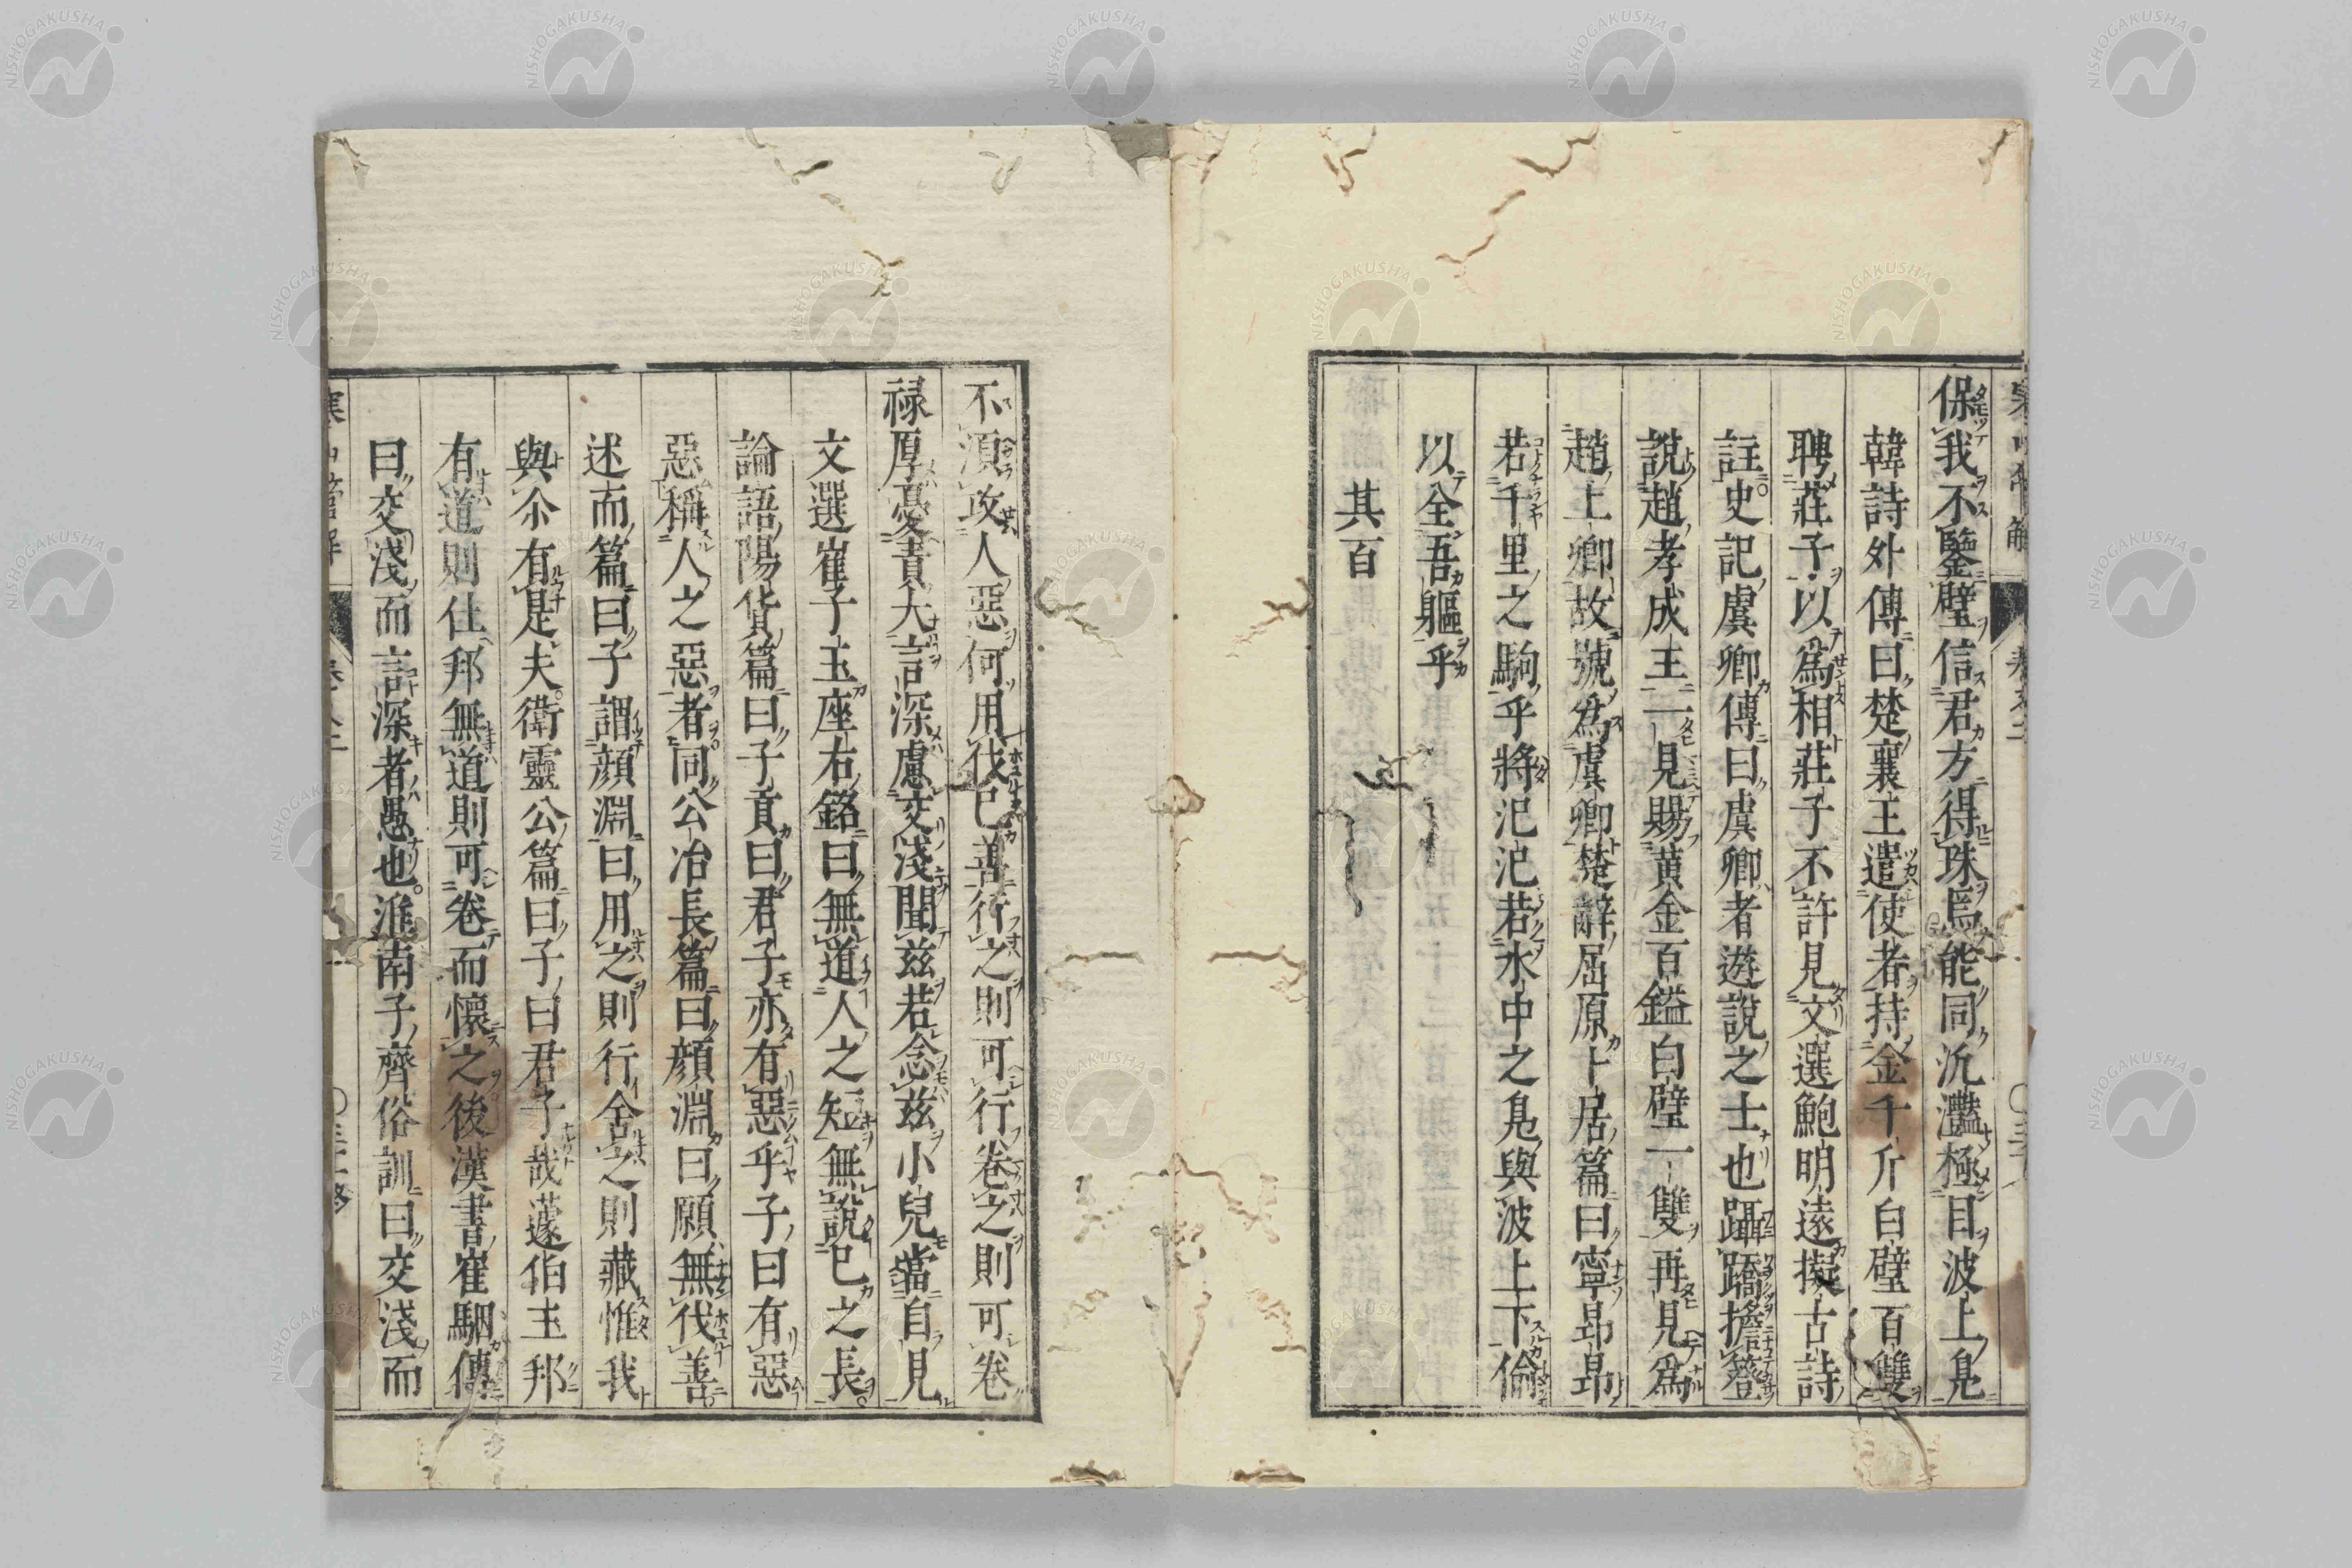 保我不鑒璧信君方得珠焉能同泛灩極目波上鳬
韓詩外傳曰楚襄王遣使者持金千斤白璧百雙
聘莊子以為相莊子不許見文選鮑明遠擬古詩
註史記虞卿傳曰虞卿者遊說之士也躡蹻擔簦
說趙孝成王一見賜黄金百鎰白璧一雙再見爲
趙上卿故號爲虞卿楚辭屈原卜居篇曰寧昻昻
若千里之駒乎將汜汜若水中之鳬與波上下偷
以全吾軀乎
其百
不須攻人惡何用伐已善行之則可行卷之則可卷
禄厚憂責大言深慮交淺聞兹若念兹小兒當自見
文選崔子玉座右銘曰無道人之短無說已之長
論語陽貨篇曰子貢曰君子亦有惡乎子曰有惡
惡稱人之惡者同公冶長篇曰顔淵曰願無伐善
述而篇曰子謂顔淵曰用之則行舍之則藏惟我
與尒有是夫衛靈公篇曰子曰君子哉蘧伯玉邦
有道則仕邦無道則可卷而懷之後漢書崔駰傳
曰交淺而言深者愚也淮南子齊俗訓曰交淺而
NISHOGAKUSHA